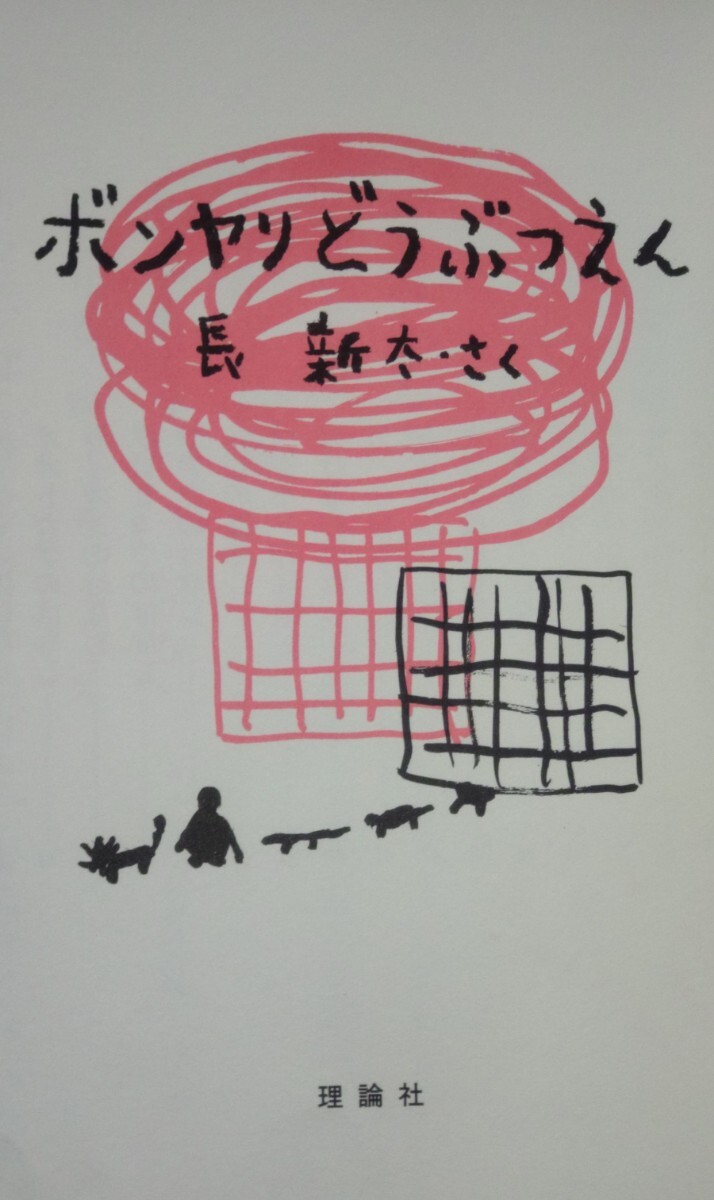 ボンヤリどうぶつえん
長 新太・さく
理論社